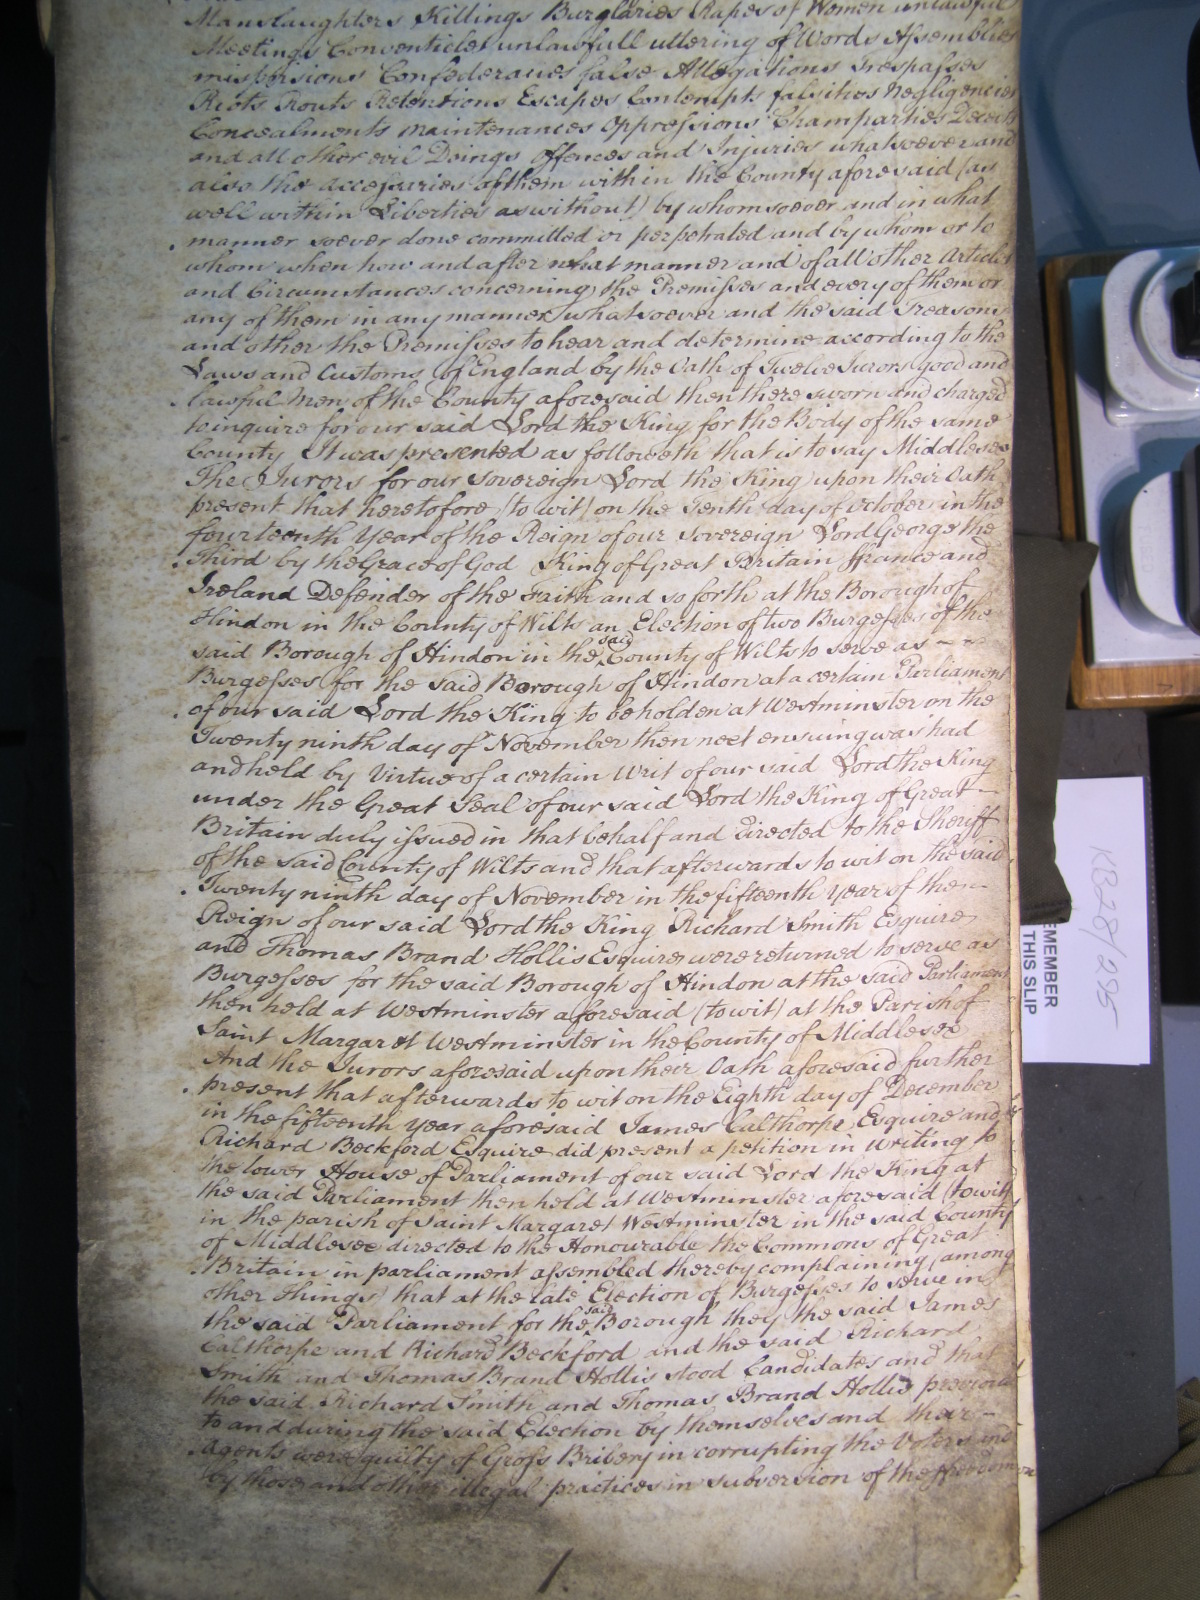 Manslaughters Killings Burglaries Rapes of Women unlawful
Meetings Conventicles unlawfull uttering of Words Assemblies
misprisions Confederacies false Allegations Trespasses
Riots Routs Retentions Escapes Contempts falsities Negligencies
Concealments maintenances oppressions Champarties Deceits
and all other evil Doings offences and Injuries whatsoever and
also the accessaries of them within the County aforesaid (as
well within Liberties as without) by whomsoever and in what
manner soever done committed or perpetrated and by whom or to
whom when how and after what manner and of all other Articles
and Circumstances concerning the Premisses and every of them or
any of them in any manner whatsoever and the said Treasons
and other the Premisses to hear and determine according to the
Laws and Customs of England by the Oath of Twelve Jurors good and
lawful men of the County aforesaid then there sworn and charged
to inquire for our said Lord the King for the Body of the same
County It was presented as followeth that is to say Middlesex
The Jurors for our sovereign Lord the King upon their Oath
present that heretofore (to wit) on the Tenth day of october in the
fourteenth Year of the Reign of our sovereign Lord George the
Third by the Grace of God King of Great Britain ffrance and
Ireland Defender of the Faith and so forth at the Borough of
Hindon in the County of Wilts an Election of two Burgesses of the
said Borough of Hindon in the said County of Wilts to serve as
Burgesses for the said Borough of Hindon at a certain Parliament
of our said Lord the King to be holden at Westminster on the
Twenty ninth day of November then next ensuing was had
and held by Virtue of a certain Writ of our said Lord the King
under the Great Seal of our said Lord the King of Great
Britain duly issued in that behalf and directed to the Sheriff
of the said County of Wilts and that afterwards to wit on the said
Twenty ninth day of November in the fifteenth Year of the
Reign of our said Lord the King Richard Smith Esquire
and Thomas Brand Hollis Esquire were returned to serve as
Burgesses for the said Borough of Hindon at the said Parliament
then held at Westminster aforesaid (to wit) at the Parish of
Saint Margaret Westminster in the County of Middlesex
And the Jurors aforesaid upon their Oath aforesaid further
present that afterwards to wit on the Eighth day of December
in the fifteenth year aforesaid James Calthorpe Esquire and
Richard Beckford Esquire did present a petition in writing to
the lower House of Parliament of our said Lord the King at
the said Parliament then held at Westminster aforesaid (to wit)
in the parish of Saint Margaret Westminster in the said County
of Middlesex directed to the Honourable the Commons of Great
Britain in parliament assembled thereby complaining (among
other things) that at the late Election of Burgesses to serve in
the said Parliament for the said Borough they the said James
Calthorpe and Richard Beckford and the said Richard
Smith and Thomas Brand Hollis stood Candidates and that
the said Richard Smith and Thomas Brand Hollis previous
to and during the said Election by themselves and their
Agents were guilty of Gross Bribery in corrupting the Voters and
by those and other illegal practices in subversion of the ffreedom
KB28/295
EMEMBER
THIS SLIP